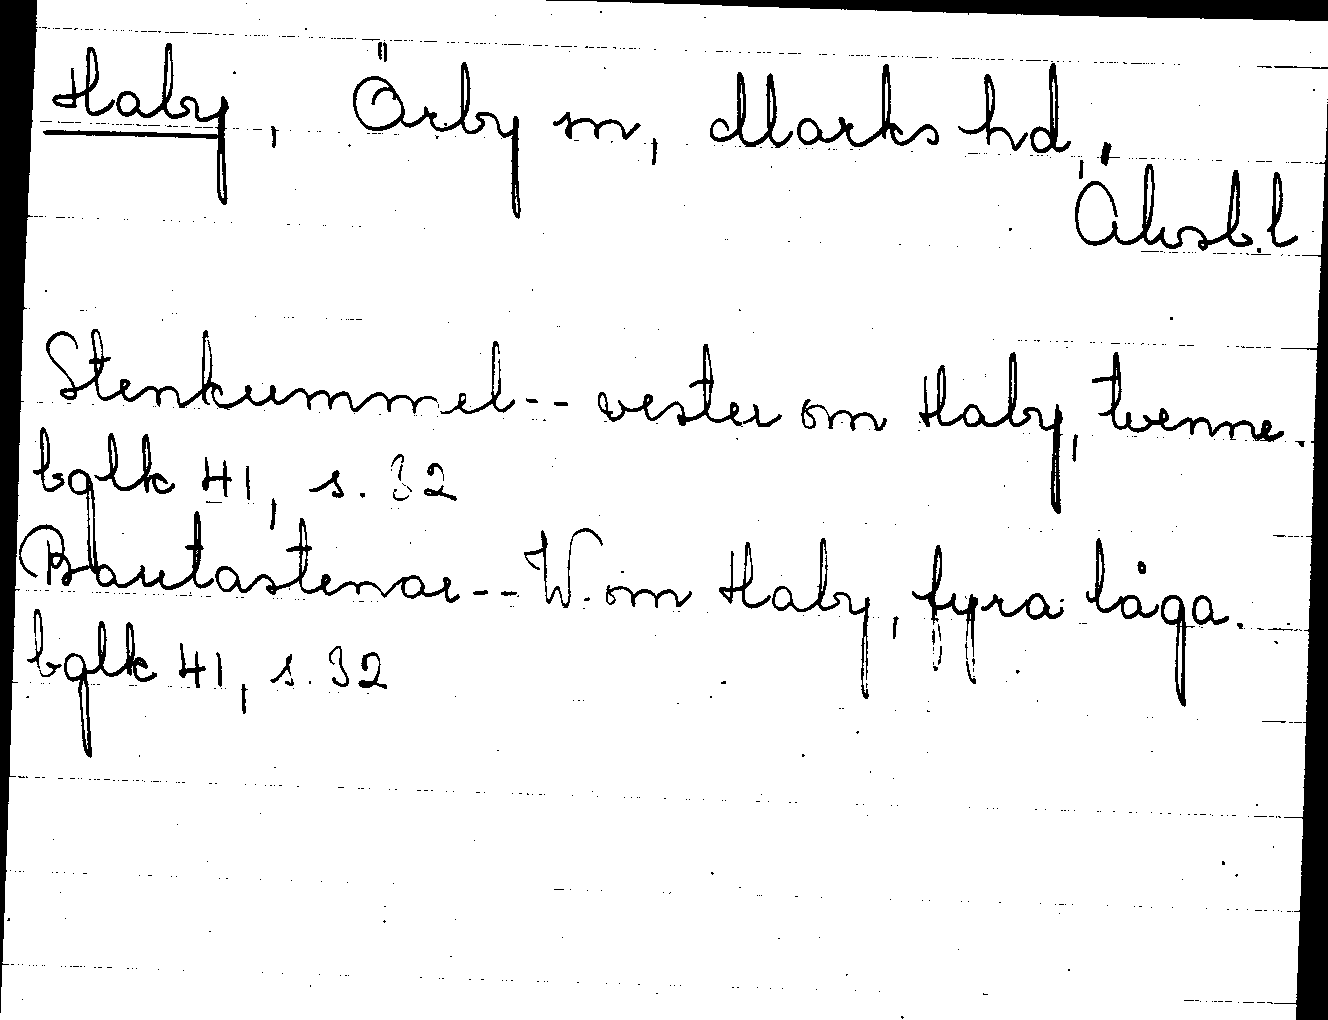 Haby, Örby sn, Marks hd,
Älvsb.l
Stenkummel-- vester om Haby, tvenne.
bglk 41, s. 32
Bautastenar-- W. om Haby, fyra låga.
bglk 41, s. 32